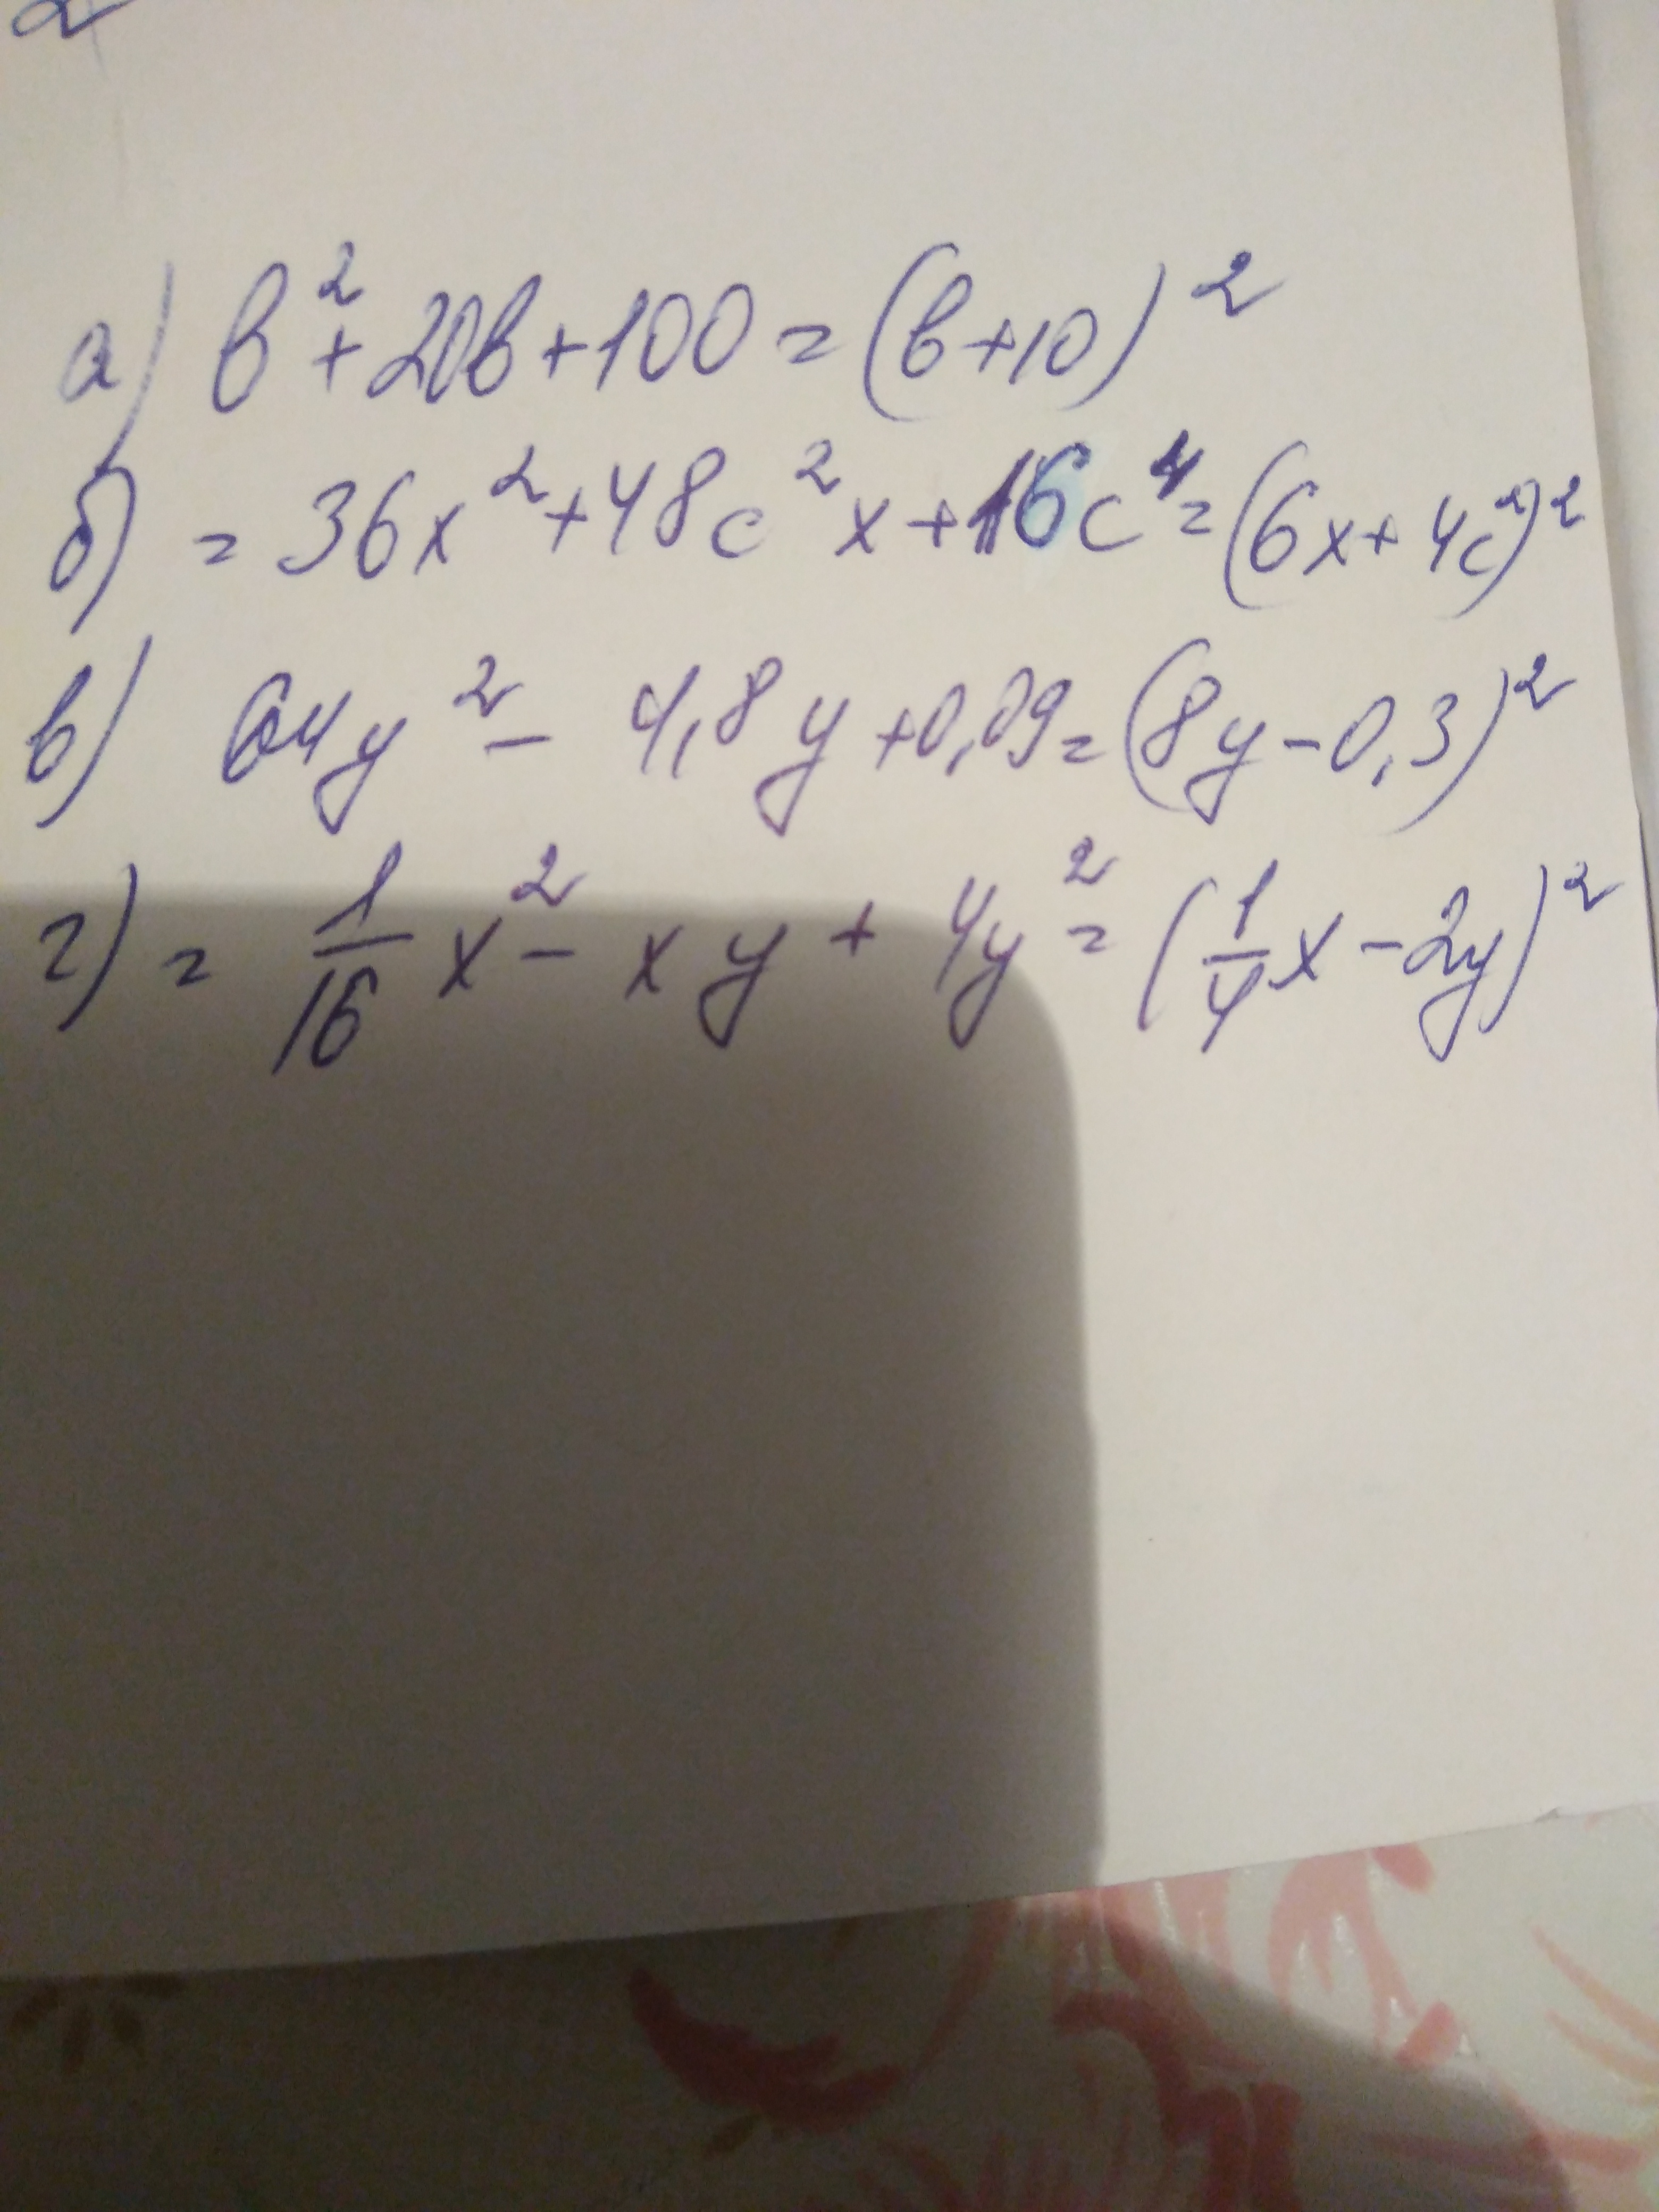 а) b² + 20b + 100 = (b + 10)²
б) = 36x² + 48c²x + 16c⁴ = (6x + 4c²)²
в) 64y² - 4,8y + 0,09 = (8y - 0,3)²
г) = 1/16 x² - xy + 4y² = (1/4 x - 2y)²